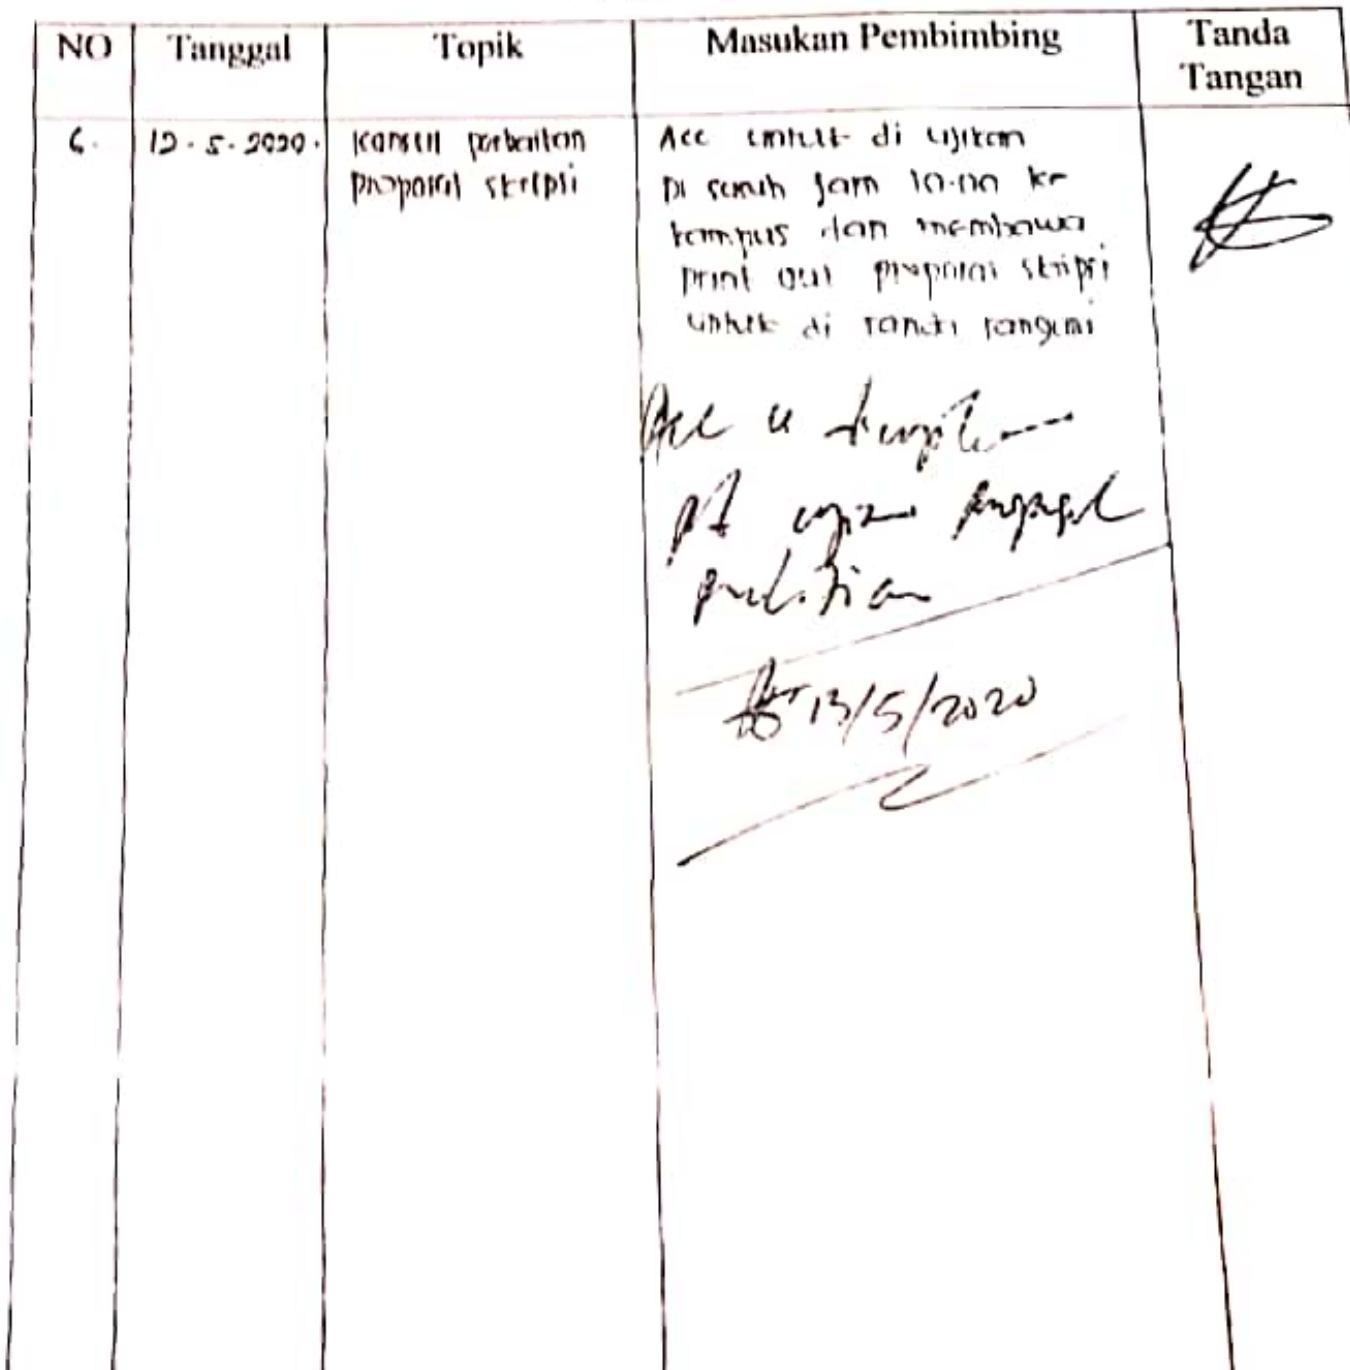 NO Tanggal Topik Masukan Pembimbing Tanda Tangan
6. 12.5.2020. Konsul perbaikan
proposal skripsi
Acc untuk di ujikan
Di suruh jam 10.00 ke
kampus dan membawa
print out proposal skripsi
untuk di tanda tangani
Acc u diujikan
pd ujian proposal
penelitian
13/5/2020